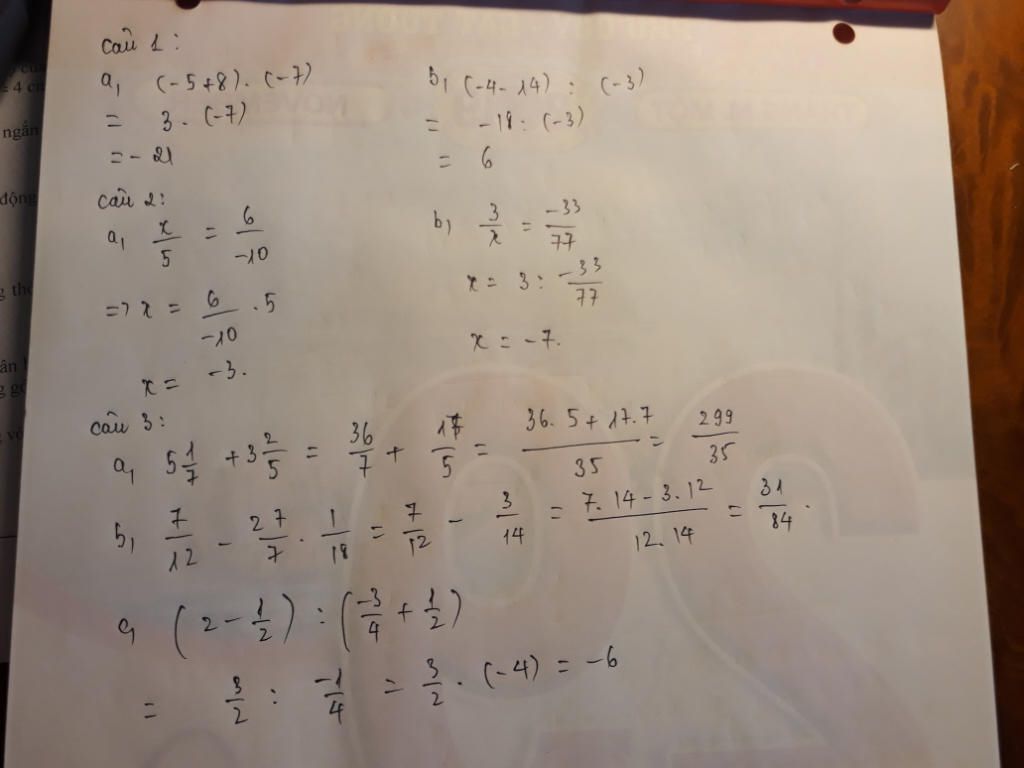 câu 1:
a, (-5+8).(-7)
= 3.(-7)
= -21
b, (-4-14) : (-3)
= -18 : (-3)
= 6
câu 2:
a, x/5 = 6/-10
=> x = 6/-10 . 5
x = -3.
b, 3/x = -33/77
x = 3 : -33/77
x = -7.
câu 3:
a, 5 1/7 + 3 2/5 = 36/7 + 17/5 = (36.5+17.7)/35 = 299/35
b, 7/12 - 27/7 . 1/18 = 7/12 - 3/14 = (7.14-3.12)/(12.14) = 31/84.
c, (2 - 1/2) : (-3/4 + 1/2)
= 3/2 : -1/4 = 3/2 . (-4) = -6
ngắn
động